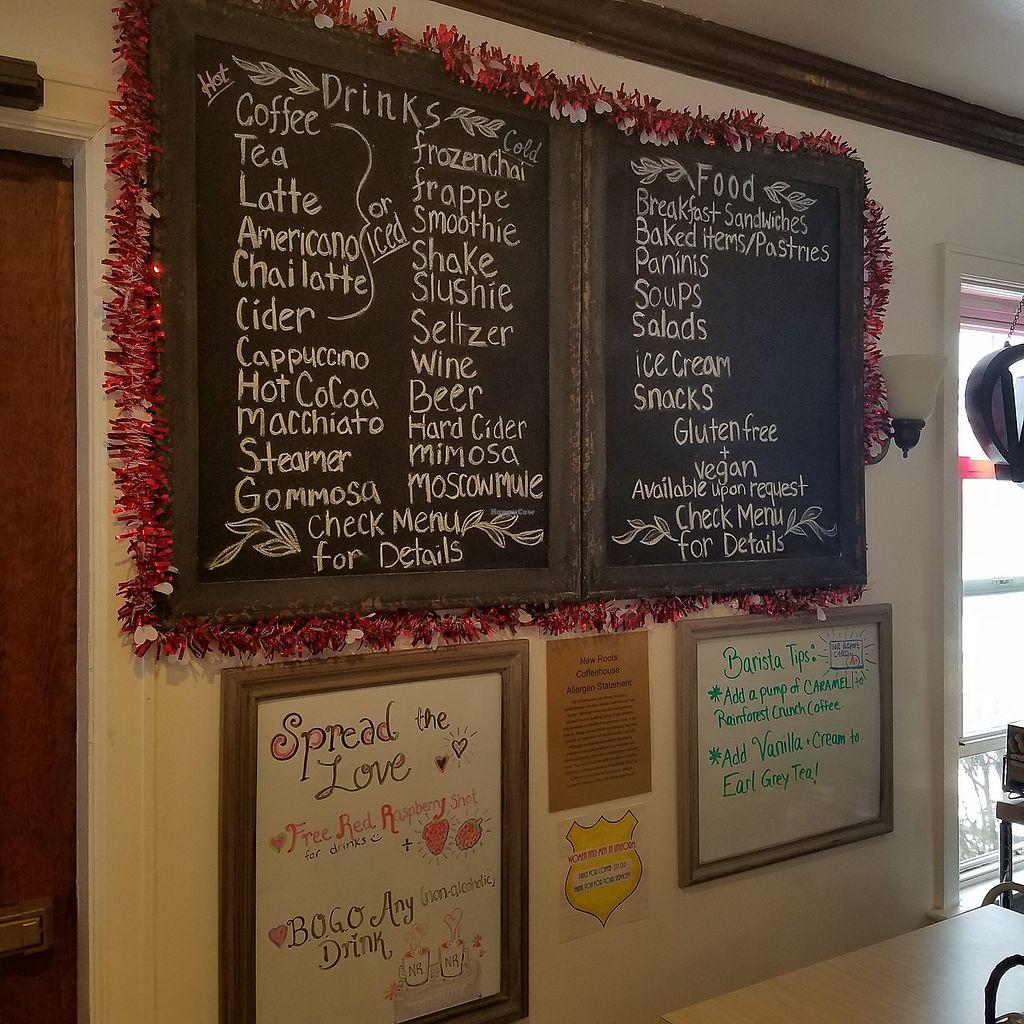 Hot
Drinks
Coffee
Tea
Latte
Americano
Chai latte
or
iced
Cider
Cappuccino
Hot CoCoa
Macchiato
Steamer
Gommosa
Cold
frozen Chai
frappe
Smoothie
Shake
Slushie
Seltzer
Wine
Beer
Hard Cider
mimosa
moscow mule
Check Menu
for Details
HappyCow
Food
Breakfast Sandwiches
Baked items/Pastries
Paninis
Soups
Salads
ice Cream
Snacks
Gluten free
+
vegan
Available upon request
Check Menu
for Details
Spread the
Love
Free Red Raspberry Shot
for drinks
+
BOGO Any (non-alcoholic)
Drink
NR NR
New Roots
Coffeehouse
Allergen Statement
WOMEN AND MEN IN UNIFORM
THANK YOU FOR YOUR SERVICE!
Barista Tips:
A+
* Add a pump of CARAMEL to
Rainforest Crunch Coffee.
* Add Vanilla + Cream to
Earl Grey Tea!